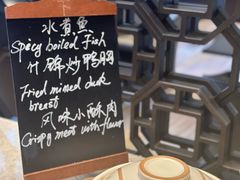 水煮鱼
Spicy boiled fish
什锦炒鸭脯
Fried mixed duck
breast
风味小酥肉
Crispy meat with flavor